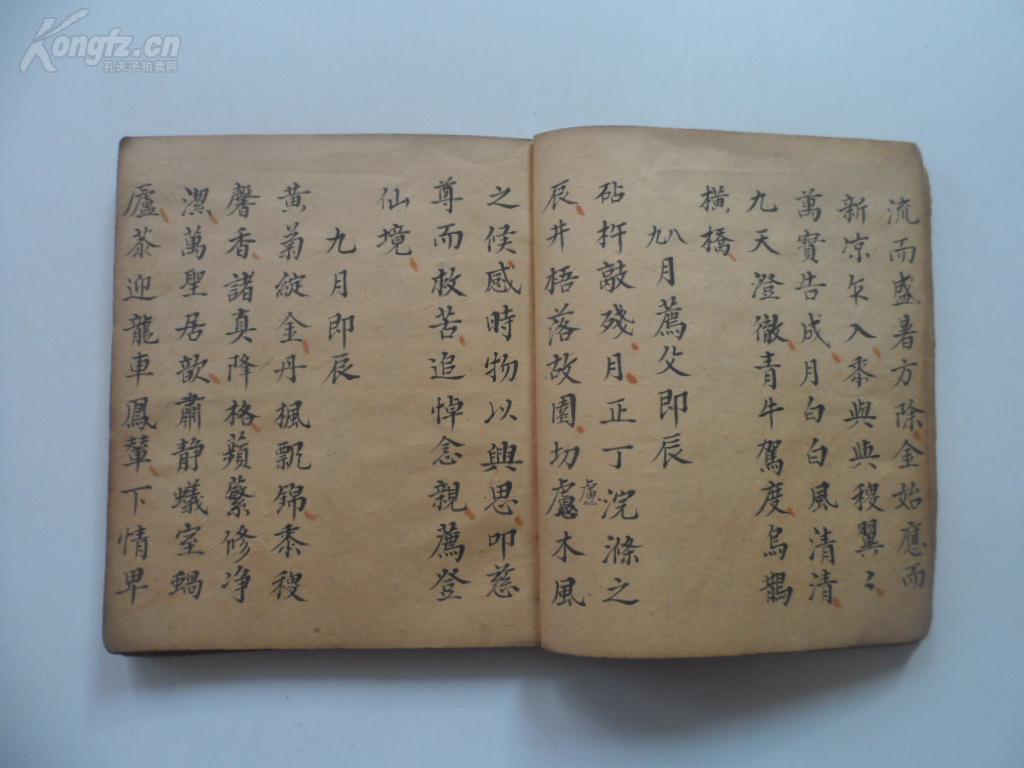 流而盛暑方除金始應而
新凉乍入黍與與稷翼〻
萬寶告成月白白風清清
九天澄徹青牛駕度烏鵲
橫橋
八
九月薦父即辰
砧杵敲殘月正丁浣滌之
辰井梧落故園切慮木風
慮
之候感時物以興思叩慈
尊而救苦追悼念親薦登
仙境
九月即辰
黄菊綻金丹楓飄錦黍稷
馨香諸真降格蘋蘩修净
潔萬聖居歆肅静蟻室蝸
廬恭迎龍車鳳輦下情卑
Kongfz.cn
孔夫子拍卖网